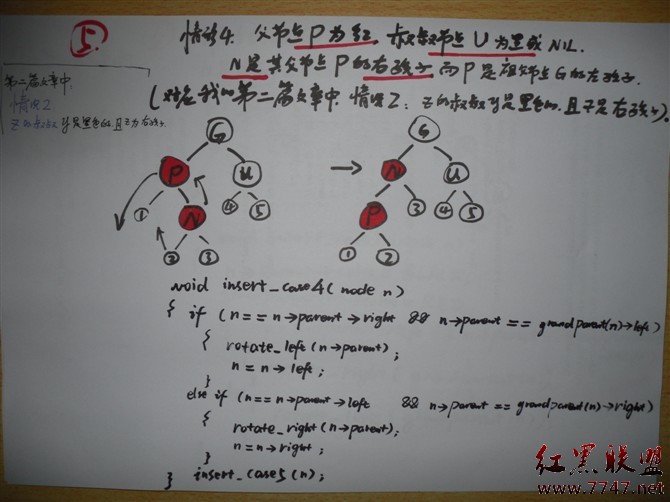 5.
情形4. 父节点P为红, 叔叔节点U为黑或NIL.
N是其父节点P的右孩子 而P是祖父节点G的左孩子.
(对应我的第二篇文章中, 情况2: z的叔叔y是黑色的, 且z是右孩子).
第二篇文章中:
情况2
z的叔叔y是黑色的, 且z为右孩子
G
P
U
1
N
4
5
2
3
G
N
U
P
3
4
5
1
2
void insert_case4(node n)
{ if (n == n->parent->right && n->parent == grandparent(n)->left)
{ rotate_left(n->parent);
n = n->left;
}
else if (n == n->parent->left && n->parent == grandparent(n)->right)
{ rotate_right(n->parent);
n = n->right;
}
} insert_case5(n);
红黑联盟
www.7747.net